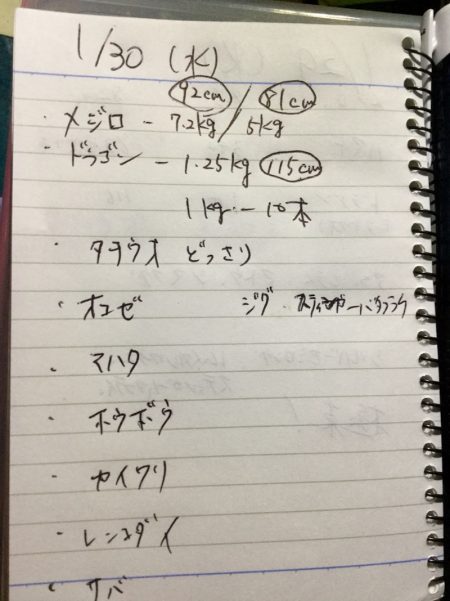 1/30 (水)
92cm 81cm
・メジロ - 7.2kg / 5kg
・ドラゴン - 1.25kg 115cm
1kg - 10本
・タチウオ どっさり
・オコゼ ジグ・
・マハタ
・ホウボウ
・カイワリ
・レンコダイ
・サバ